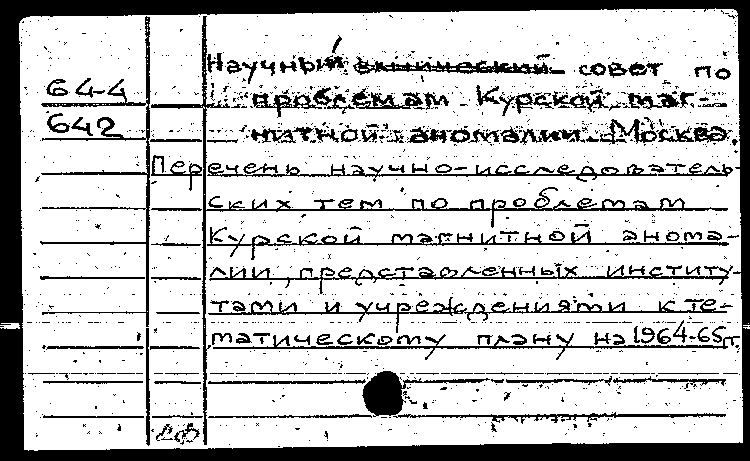 64-4
642
Научный совет по
проблемам Курской маг-
нитной аномалии. Москва.
Перечень научно-исследователь-
ских тем по проблемам
Курской магнитной анома-
лии, представленных институ-
тами и учреждениями к те-
матическому плану на 1964-65 гг.